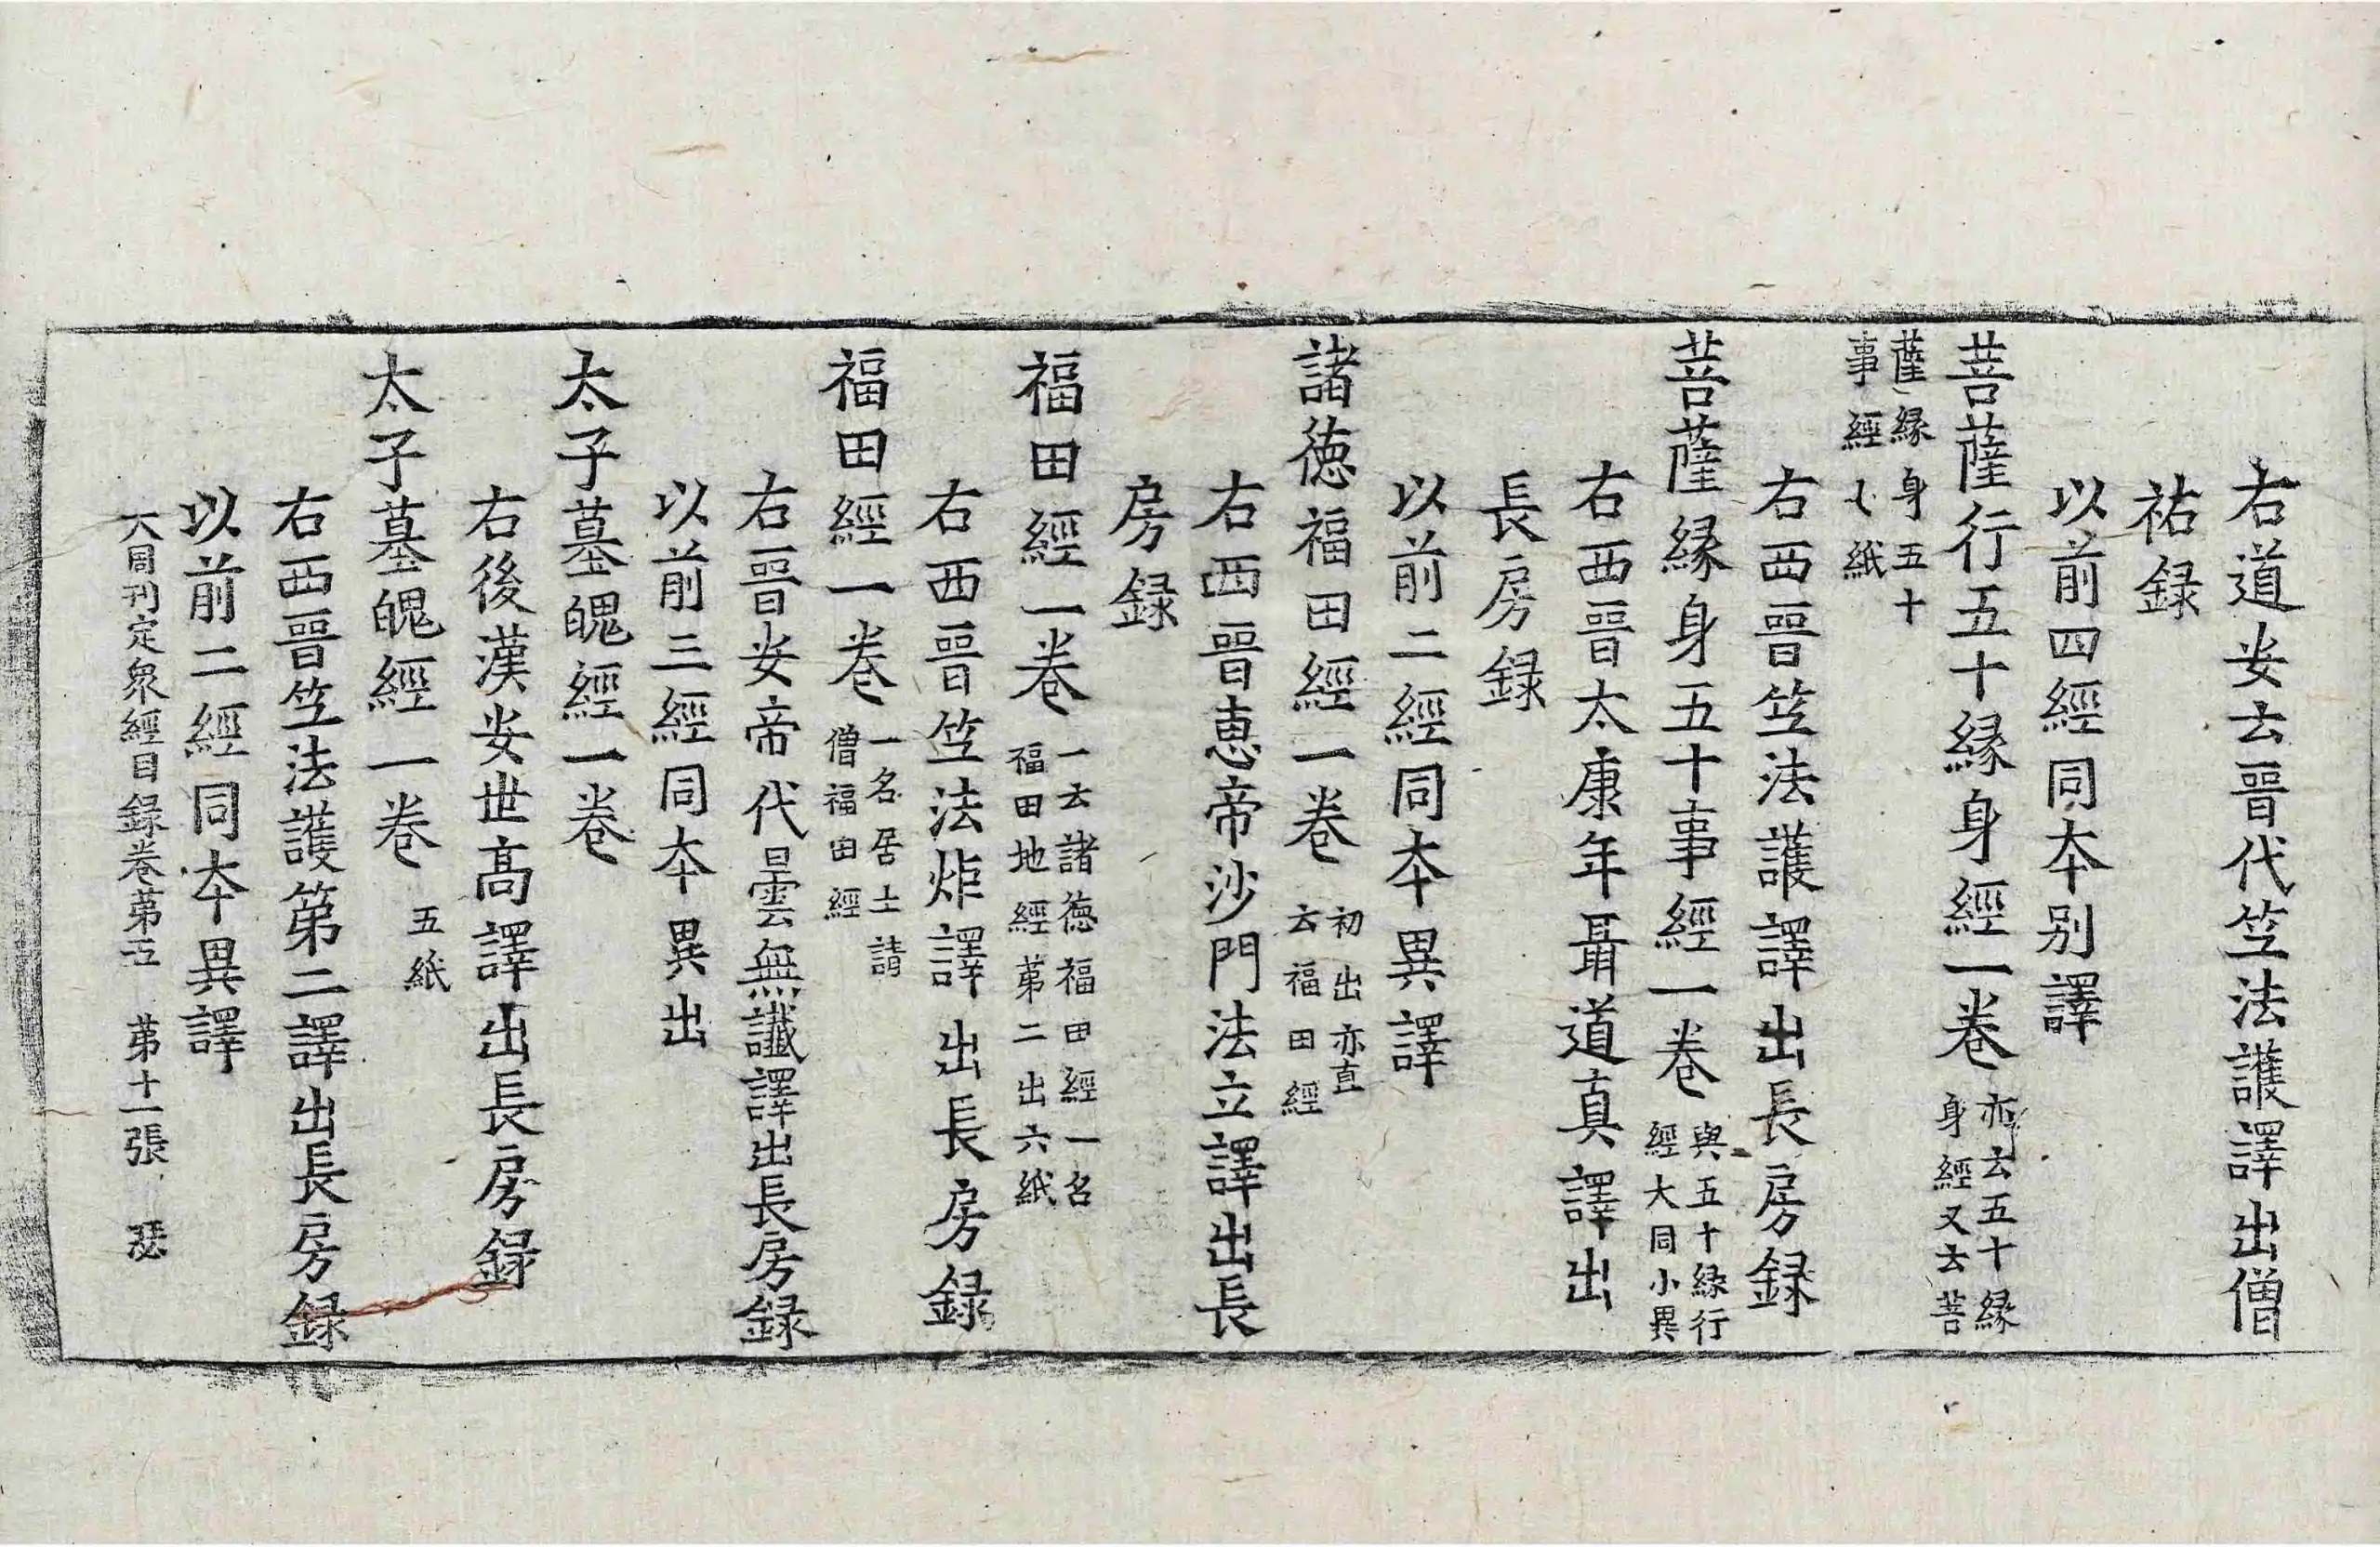 右道安云晉代笁法護譯出僧
祐録
以前四經同本别譯
菩薩行五十緣身經一卷 亦云五十緣身經又云菩
薩緣身五十事經七紙
右西晉笁法護譯出長房録
菩薩緣身五十事經一卷 與五十緣行經大同小異
右西晉太康年聶道真譯出
長房録
以前二經同本異譯
諸德福田經一卷 初出亦直云福田經
右西晉恵帝沙門法立譯出長
房録
福田經一卷 一云諸德福田經一名福田地經第二出六紙
右西晉笁法炬譯出長房録
福田經一卷 一名居士請僧福田經
右晉安帝代曇無讖譯出長房録
以前三經同本異出
太子墓魄經一卷
右後漢安世高譯出長房録
太子墓魄經一卷 五紙
右西晉笁法護第二譯出長房録
以前二經同本異譯
大周刊定衆經目録卷第五 第十一張